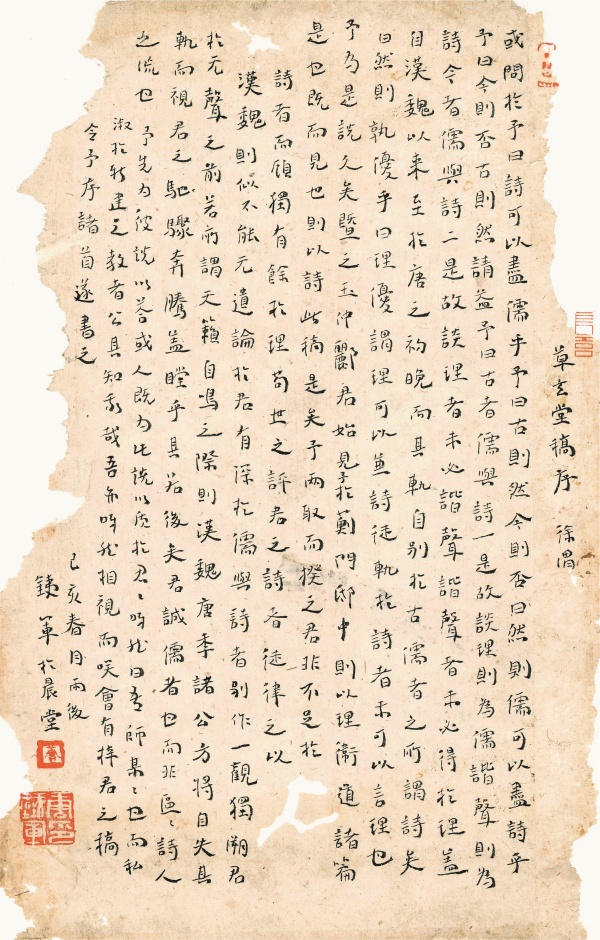 草玄堂稿序 徐渭
或問於予曰詩可以盡儒乎予曰古則然今則否曰然則儒可以盡詩乎
予曰今則否古則然請益予曰古者儒與詩一是故談理則為儒諧聲則為
詩今者儒與詩二是故談理者未必諧聲諧聲者未必得於理蓋
自漢魏以來至於唐之初晚而其軌自別於古儒者之所謂詩矣
曰然則孰優乎曰理優謂理可以兼詩徒軌於詩者未可以言理也
予為是說久矣暨之玉仲酈君始見予於薊門邸中則以理衛道諸篇
是也既而見也則以詩此稿是矣予兩取而揆之君非不足於
詩者而顧獨有餘於理苟世之評君之詩者徒律之以
漢魏則似不能元遺論於君有深於儒與詩者別作一觀獨朔君
於元聲之前若所謂天籟自鳴之際則漢魏唐季諸公方將自失其
軌而視君之馳驟奔騰蓋瞠乎其若後矣君誠儒者也而非區々詩人
之流也 予先為彼說以荅或人既為此說以质於君々呀然曰吾師某々也而私
淑於新建之教者公其知我哉吾亦呀然相視而咲會有梓君之稿
令予序諸首遂書之
己亥春月雨後
錶軍於晨堂